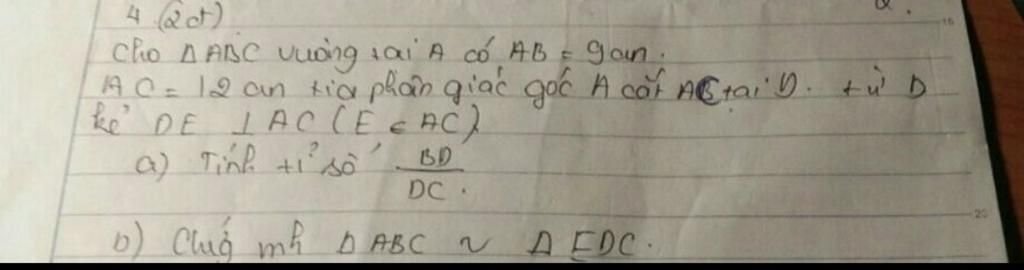 4 (2đ)
Cho Δ ABC vuông tại A có AB = 9cm.
AC = 12 cm tia phân giác góc A cắt BC tại D. từ D
kẻ DE ⊥ AC (E ∈ AC)
a) Tính tỉ số BD/DC.
b) Chứg mh Δ ABC ~ Δ EDC.